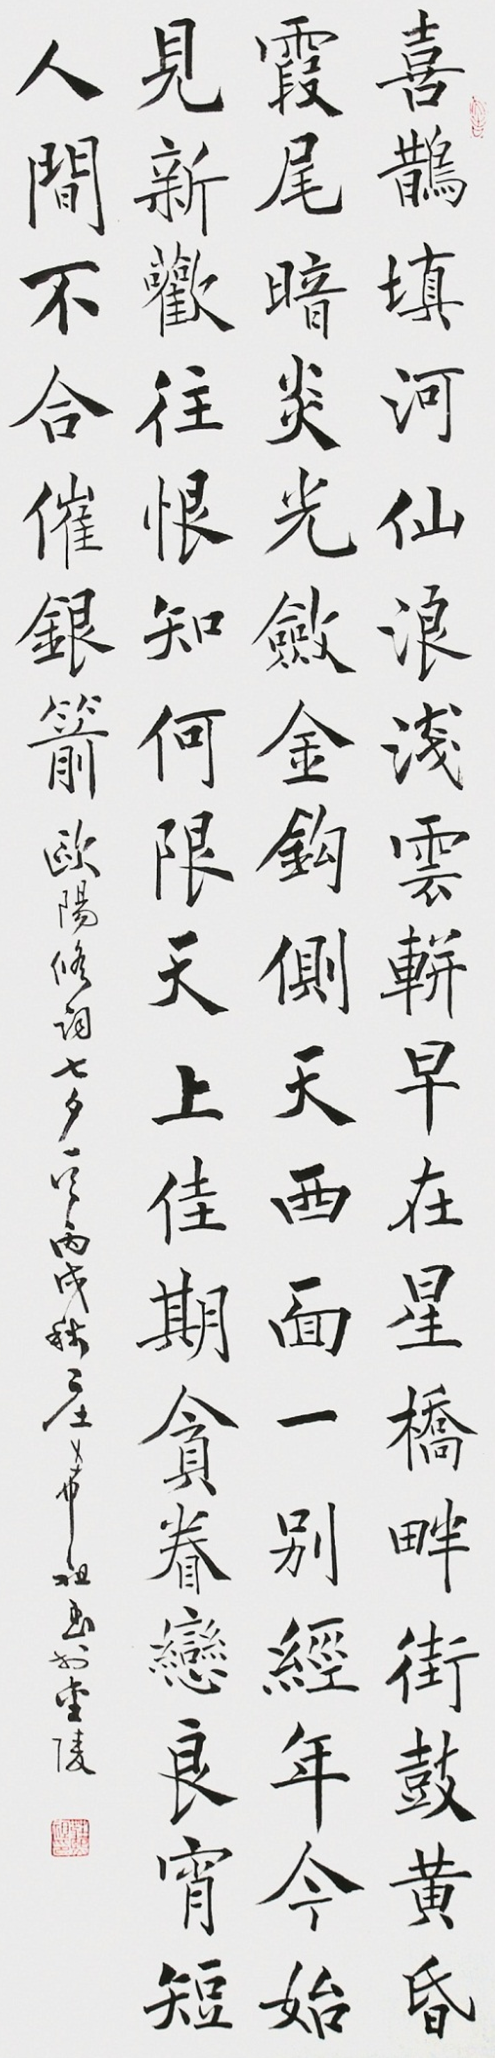 喜鵲填河仙浪淺雲軿早在星橋畔街鼓黃昏
霞尾暗炎光斂金鈎側天西面一別經年今始
見新歡往恨知何限天上佳期貪眷戀良宵短
人間不合催銀箭
歐陽修詞七夕一首丙戌秋